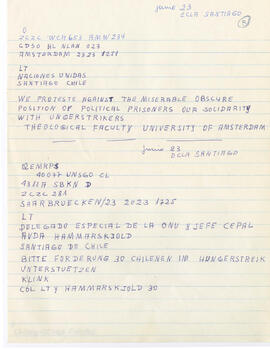 june 23
ECLA SANTIAGO
5
ZCZC WCH653 AMW234
CDSO HL NLAN 023
AMSTERDAM 23 23 1251
LT
NACIONES UNIDAS
SANTIAGO CHILE
WE PROTESTE AGAINST THE MISERABLE OBSCURE
POSITION OF POLITICAL PRISONERS OUR SOLIDARITY
WITH UNGERSTRIKERS
THEOLOGICAL FACULTY UNIVERSITY OF AMSTERDAM
june 23
ECLA SANTIAGO
40077 UNSGO CL
SBKN D
ZCZC 281
SAARBRUECKEN/23 2023 1725
LT
DELEGADO ESPECIAL DE LA ONU Y JEFE CEPAL
AVDA HAMMARSKJOLD
SANTIAGO DE CHILE
BITTE FORDERUNG 30 CHILENEN IM HUNGERSTREIK
UNTERSTUETZEN
KLINK
COL LT Y HAMMARSKJOLD 30